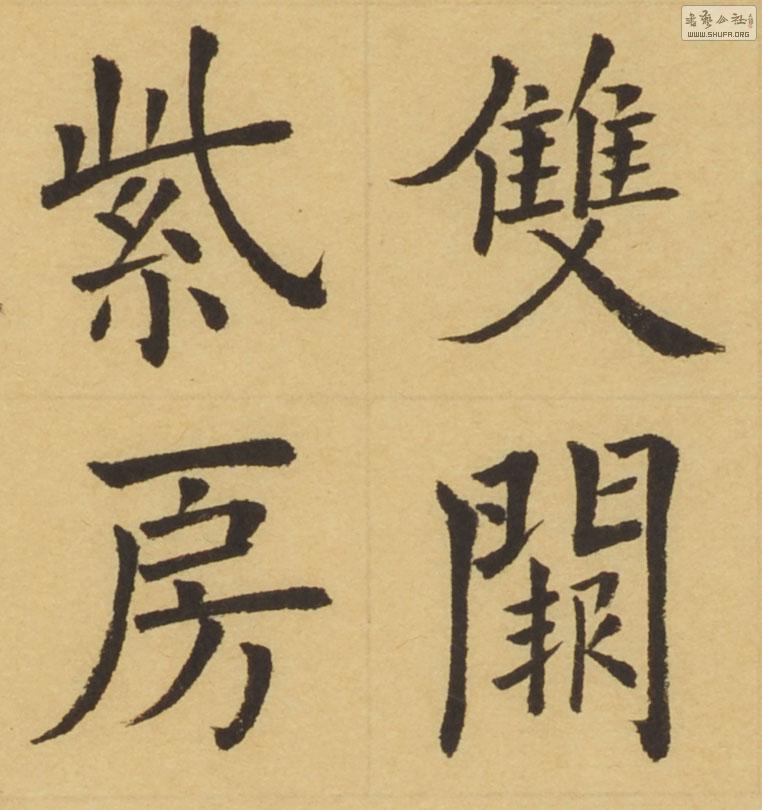 書藝公社
WWW.SHUFA.ORG
雙闕
紫房